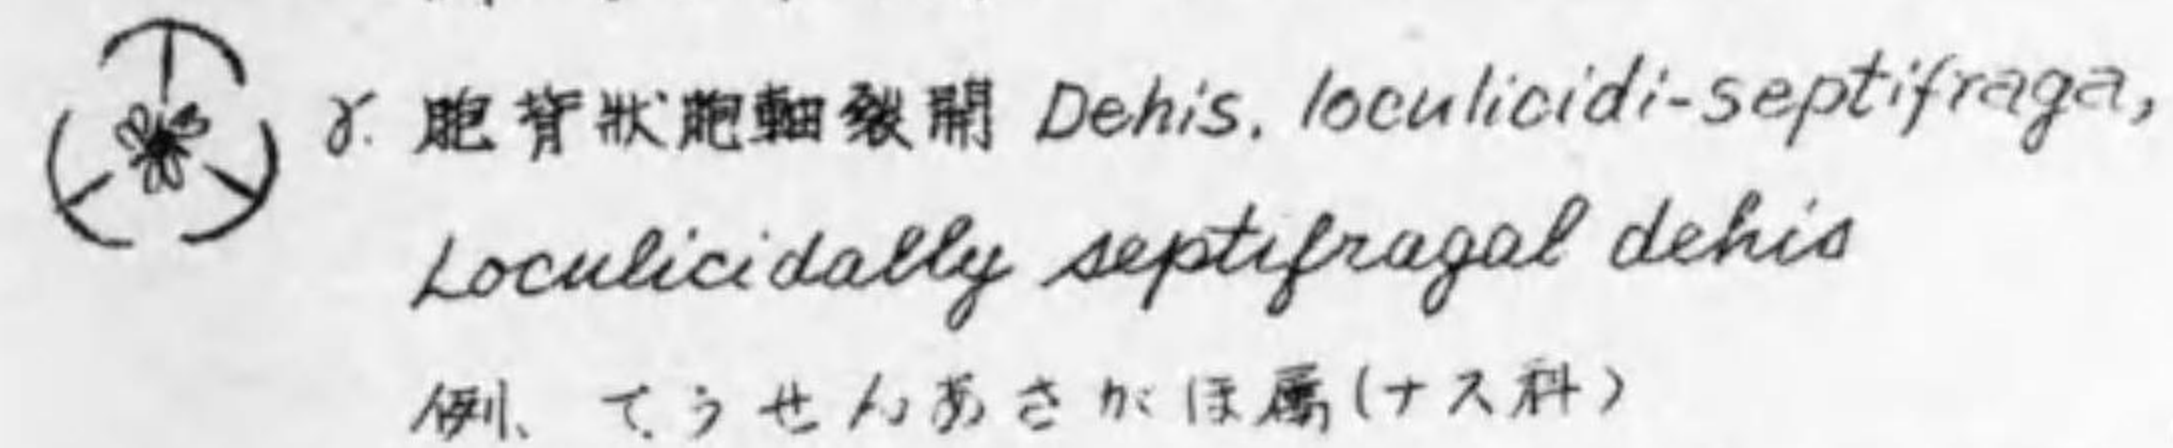 γ. 胞背狀胞軸裂開 Dehis. loculicidi-septifraga,
Loculicidally septifragal dehis
例、てうせんあさがほ属(ナス科)